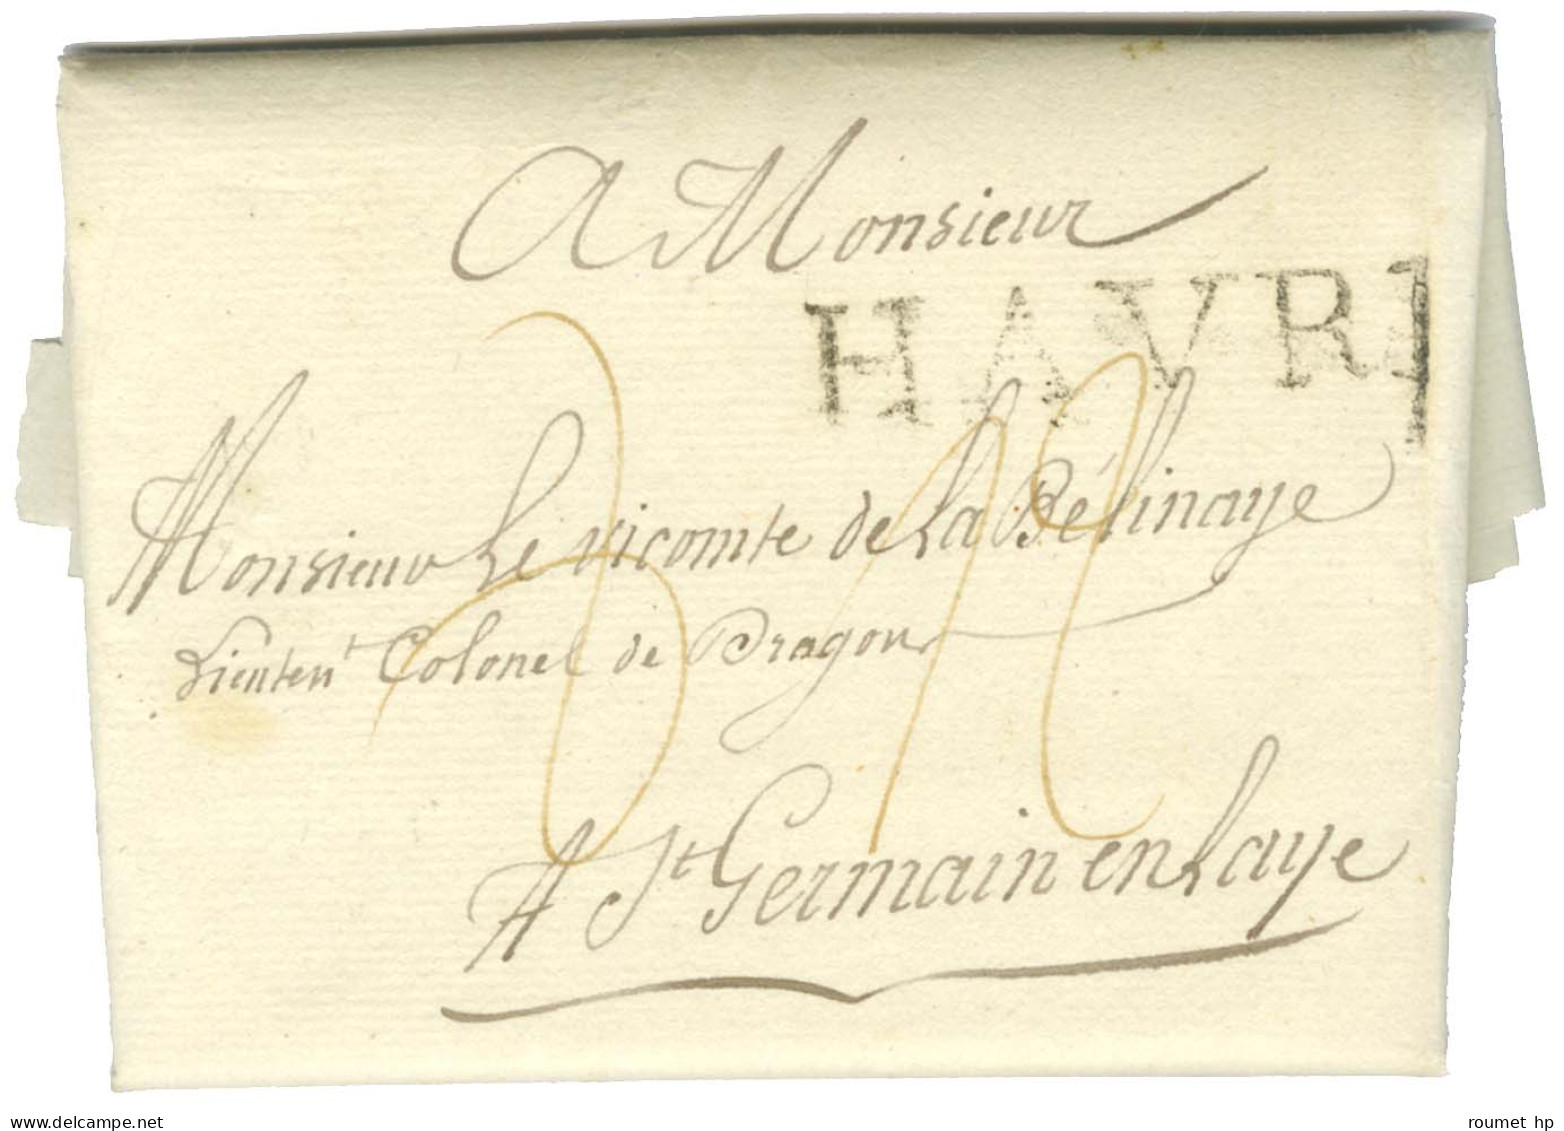 A Monsieur
HAVRE
Monsieur Le vicomte de La Bélinaye
Lieutent Colonel de Dragon
A St Germain en Laye
delcampe.net
roumet hp